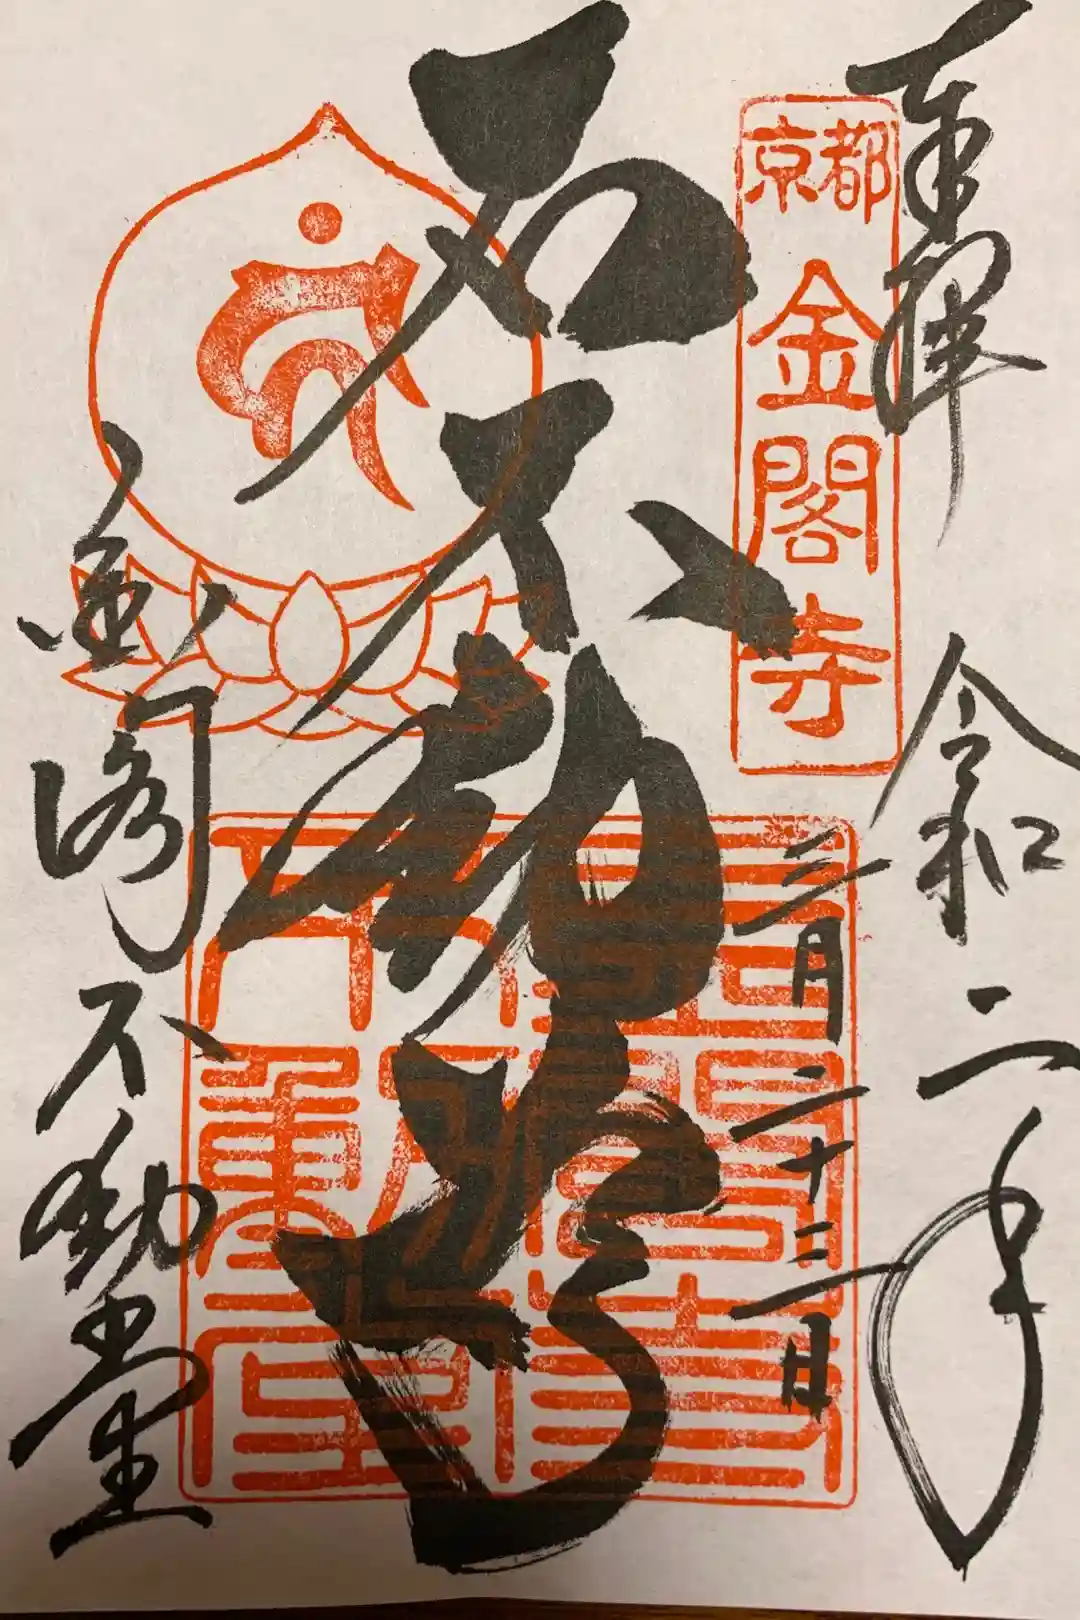 奉拝
令和二年
三月二十三日
京都
金閣寺
石不動尊
金閣寺
不動堂
金閣不動堂